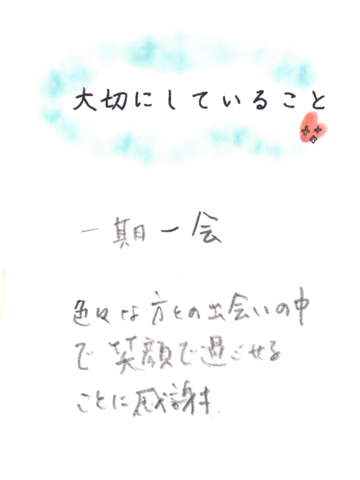 大切にしていること
一期一会
色々な方との出会いの中
で笑顔で過ごせる
ことに感謝